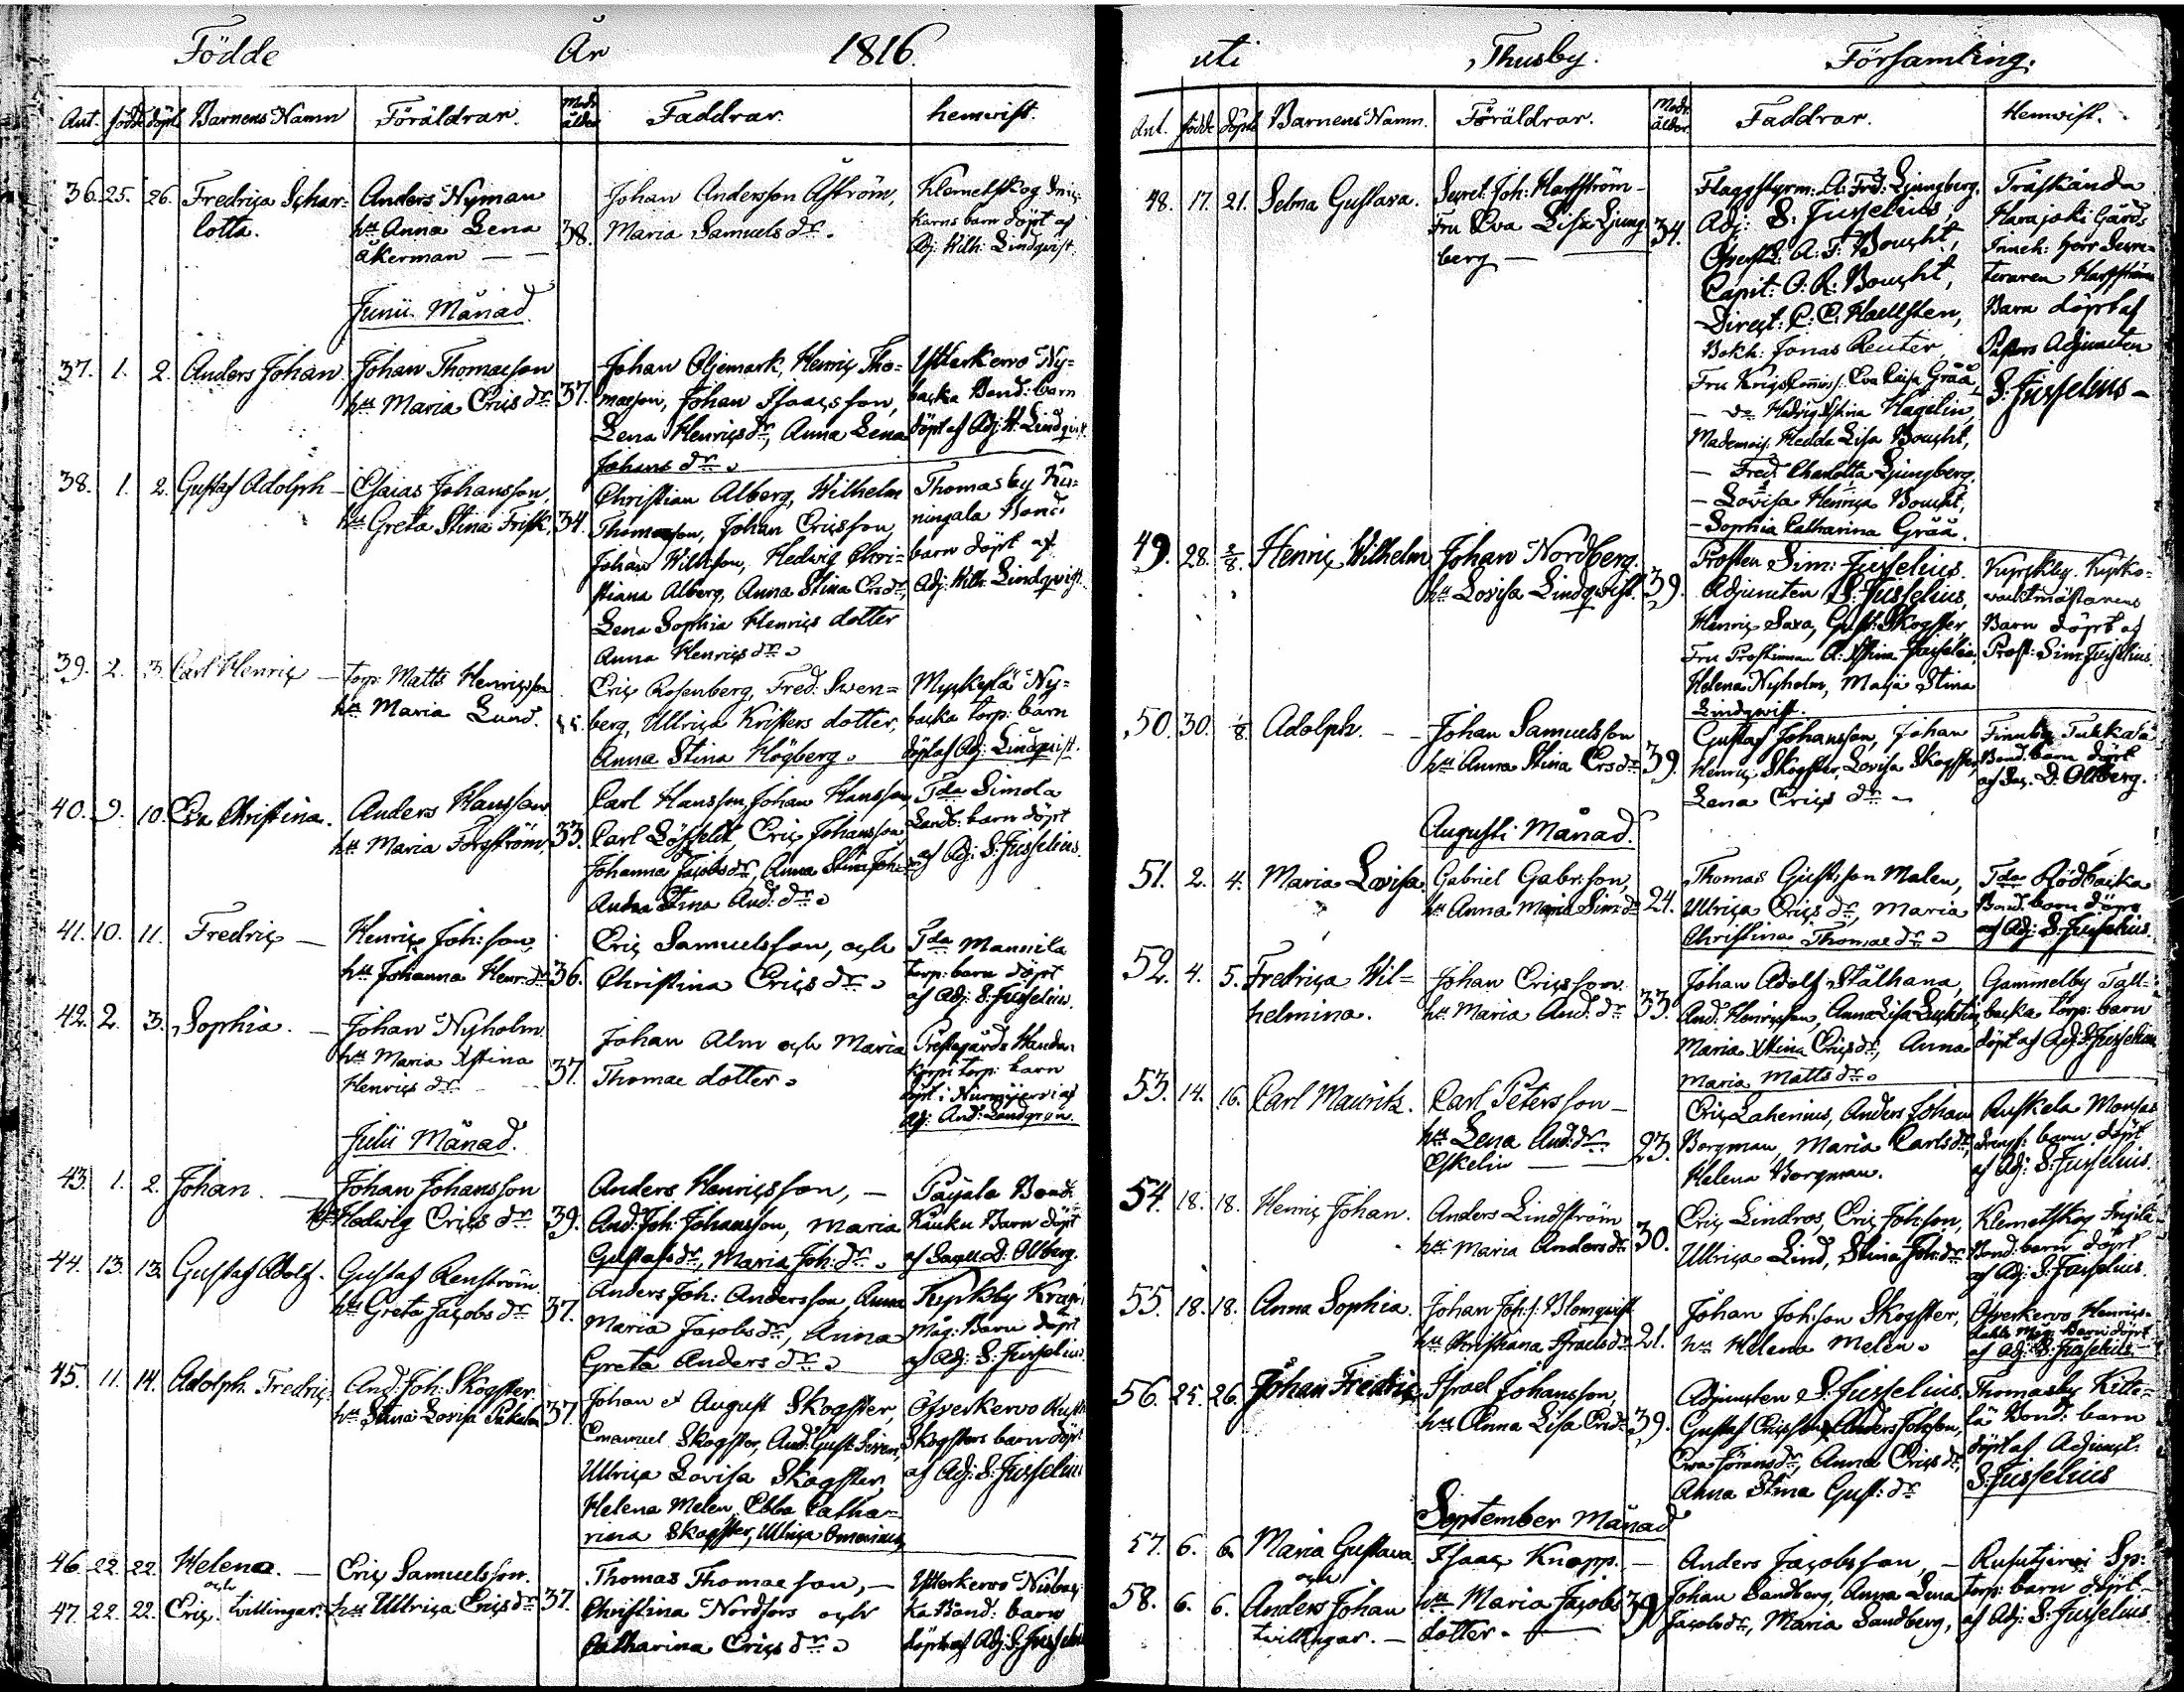 Födde År 1816.
Ant. födde döpte Barnens Namn Föräldrar. Modr. ålder Faddrar. hemvist.
36. 25. 26. Fredrica Schar=
lotta.
Anders Nyman
hu Anna Lena
åkerman — —
38.
Johan Andersson Åström,
Maria Samuels dr.
Klemetskog
barn döpt af
Adj: Wilh: Lindqvist.
Junii Månad.
37. 1. 2. Anders Johan.
Johan Thomaeson
hu Maria Erics dr
37.
Johan Oljemark, Henric Tho=
maeson, Johan Isaacsson,
Lena Henricsdr, Anna Lena
Johans dr.
Ytterkervo Ny=
backa Bond: barn
döpt af Adj: W. Lindqvist.
38. 1. 2. Gustaf Adolph —
Esaias Johansson,
hu Greta Stina Frisk.
34.
Christian Alberg, Wilhelm
Thomasson, Johan Ericsson,
Johan Willison, Hedwig Chri=
stiana Alberg, Anna Stina Ersdr,
Lena Sophia Henrics dotter
Anna Henricsdr.
Thomasby Ku=
ningala Bond:
barn döpt af
Adj: Wilh: Lindqvist.
39. 2. 3. Carl Henric —
torp: Matts Henricsson
hu Maria Lund.
Eric Rosenberg, Fred. Swen=
berg, Ullrica Kristers dotter,
Anna Stina Högberg.
Myckylä Ny=
backa torp: barn
döpt af Adj: Lindqvist.
40. 9. 10. Eva Christina.
Anders Hansson
hu Maria Forsström.
33.
Carl Hansson, Johan Hansson,
Carl Löffelit, Eric Johansson
Johanna Jacobsdr, Anna Stina Joh: dr
Anna Stina And: dr.
Tda Simola
Landb: barn döpt
af Adj: S: Jusselius.
41. 10. 11. Fredric —
Henric Joh:son,
hu Johanna Henr: dr
36.
Eric Samuelsson, och
Christina Erics dr.
Tda Mannila
torp: barn döpt
af Adj: S: Jusselius.
42. 2. 3. Sophia. —
Johan Nyholm.
hu Maria Xstina
Henrics dr.
37.
Johan Alm och Maria
Thomae dotter.
Prestgårds
torp: barn
döpt i Nurmijervi af
Adj: And: Landgren.
Julii Månad.
43. 1. 2. Johan. —
Johan Johansson
hu Hedwig Erics dr
39.
Anders Henricsson, —
And: Joh: Johansson, Maria
Gustafsdr, Maria Joh: dr.
Payala Bond:
Kauku Barn döpt
af D: Ollberg.
44. 13. 13. Gustaf Adolf.
Gustaf Renström.
hu Greta Jacobs dr
37.
Anders Joh: Andersson, Anna
Maria Jacobsdr, Anna
Greta Anders dr.
Kyrkby
Måg: Barn döpt
af Adj: S: Jusselius.
45. 11. 14. Adolph Fredric.
And: Joh: Skogster.
hu Stina Lovisa
37.
Johan & August Skogster,
Emanuel Skogster, And: Gust:
Ullrica Lovisa Skogster,
Helena Melen, Ebba Catha=
rina Skogster, Ullrica
Öfverkervo
Skogsters barn döpt
af Adj: S: Jusselius
46. 22. 22. Helena. —
och
47. 22. 22. Eric. tvillingar.
Eric Samuelsson.
hu Ullrica Erics dr
37.
Thomas Thomaeson, —
Christina Nordfors och
Catharina Erics dr.
Ytterkervo
Bond: barn
döpte af Adj: S: Jusselius
uti Thusby. Församling.
Ant. födde döpte Barnens Namn. Föräldrar. Modr. ålder. Faddrar. Hemvist.
48. 17. 21. Selma Gustava.
Secret. Joh: Harfström —
Fru Eva Lisa Ljung=
berg —
34.
Flaggstyrm: A: Fred: Ljungberg.
Adj: S: Jusselius,
Öfverstl: A: F: Bought,
Capit: O: R: Bought,
Direct: C: C: Haellsten,
Bokh: Jonas Reuter,
Fru Krigs Commiss: Eva Caisa Grää,
— do Hedvig Xstina Hagelin
Mademois. Hedda Lisa Bought,
— Fred. Charlotta Ljungberg.
— Lovisa Henrica Bought,
— Sophia Catharina Grää.
Träskända
Harajoki Gårds
Inneh: Herr Secre=
teraren Harfström
Barn döpt af
Pastors Adjuncten
S: Jusselius —
49. 28. 2/8 Henric Wilhelm
Johan Nordberg.
hu Lovisa Lindqvist.
39.
Prosten Sim: Jusselius.
Adjuncten S: Jusselius,
Henric Saxa, Gust: Skogster
Fru Prostinnan A: Xstina Jusselia,
Helena Nyholm, Maja Stina
Lindqvist.
Kyrckby. Kyrko=
vaktmästarens
Barn döpt af
Prost: Sim: Jusselius.
50. 30. 1/8 Adolph. — —
Johan Samuelsson
hu Anna Stina Ersdr
39.
Gustaf Johansson, Johan
Henric Skogster, Lovisa Skogster,
Lena Erics dr —
Finnby Tukkala
Bond: barn döpt
af D. Ollberg.
Augusti Månad.
51. 2. 4. Maria Lovisa
Gabriel Gabr:son,
hu Anna Maria Sim: dr
24.
Thomas Gust:son Malen,
Ullrica Erics dr, Maria
Christina Thomae dr.
Tda Rödbacka
Bond: barn döpt
af Adj: S: Jusselius.
52. 4. 5. Fredrica Wil=
helmina.
Johan Ericsson.
hu Maria And: dr
33.
Johan Adolf Stålhana,
And: Henricsson, Anna Lisa
Maria Xstina Ericsdr, Anna
Maria Matts dr.
Gammelby Tall=
backa torp: barn
döpt af Adj: S: Jusselius
53. 14. 16. Carl Mauritz.
Carl Petersson —
hu Lena And: dr
Eskelin — —
23.
Eric Lahenius, Anders Johan
Borgman, Maria Carlsdr,
Helena Borgman.
Ruskela Monsas
drengs: barn döpt
af Adj: S: Jusselius.
54. 18. 18. Henric Johan.
Anders Lindström
hu Maria Anders dr
30.
Eric Lindros, Eric Joh:son,
Ullrica Lind, Stina Joh: dr
Klemetskog
Bond: barn döpt
af Adj: S: Jusselius.
55. 18. 18. Anna Sophia.
Johan Joh:s: Blomqvist
hu Christiana Israels dr
21.
Johan Joh:son Skogster,
hu Helena Melen.
Öfverkervo Henrics=
Måg: Barn döpt
af Adj: S: Jusselius —
56. 25. 26. Johan Fredric
Israel Johansson,
hu Anna Lisa Ersdr
39.
Adjuncten S: Jusselius,
Gustaf Ericsson, Anders Johsson,
Eva Jöransdr, Anna Erics dr,
Anna Stina Gust: dr
Thomasby Kitte=
lä Bond: barn
döpt af Adjunct.
S: Jusselius
September Månad
57. 6. 6. Maria Gustava
och
58. 6. 6. Anders Johan
tvillingar. —
Isaac Knapp. —
hu Maria Jacobs
dotter. —
39
Anders Jacobsson, —
Johan Sandberg, Anna Lena
Jacobsdr, Maria Sandberg,
Rusutjervi Sp:
torp: barn döpt
af Adj: S: Jusselius